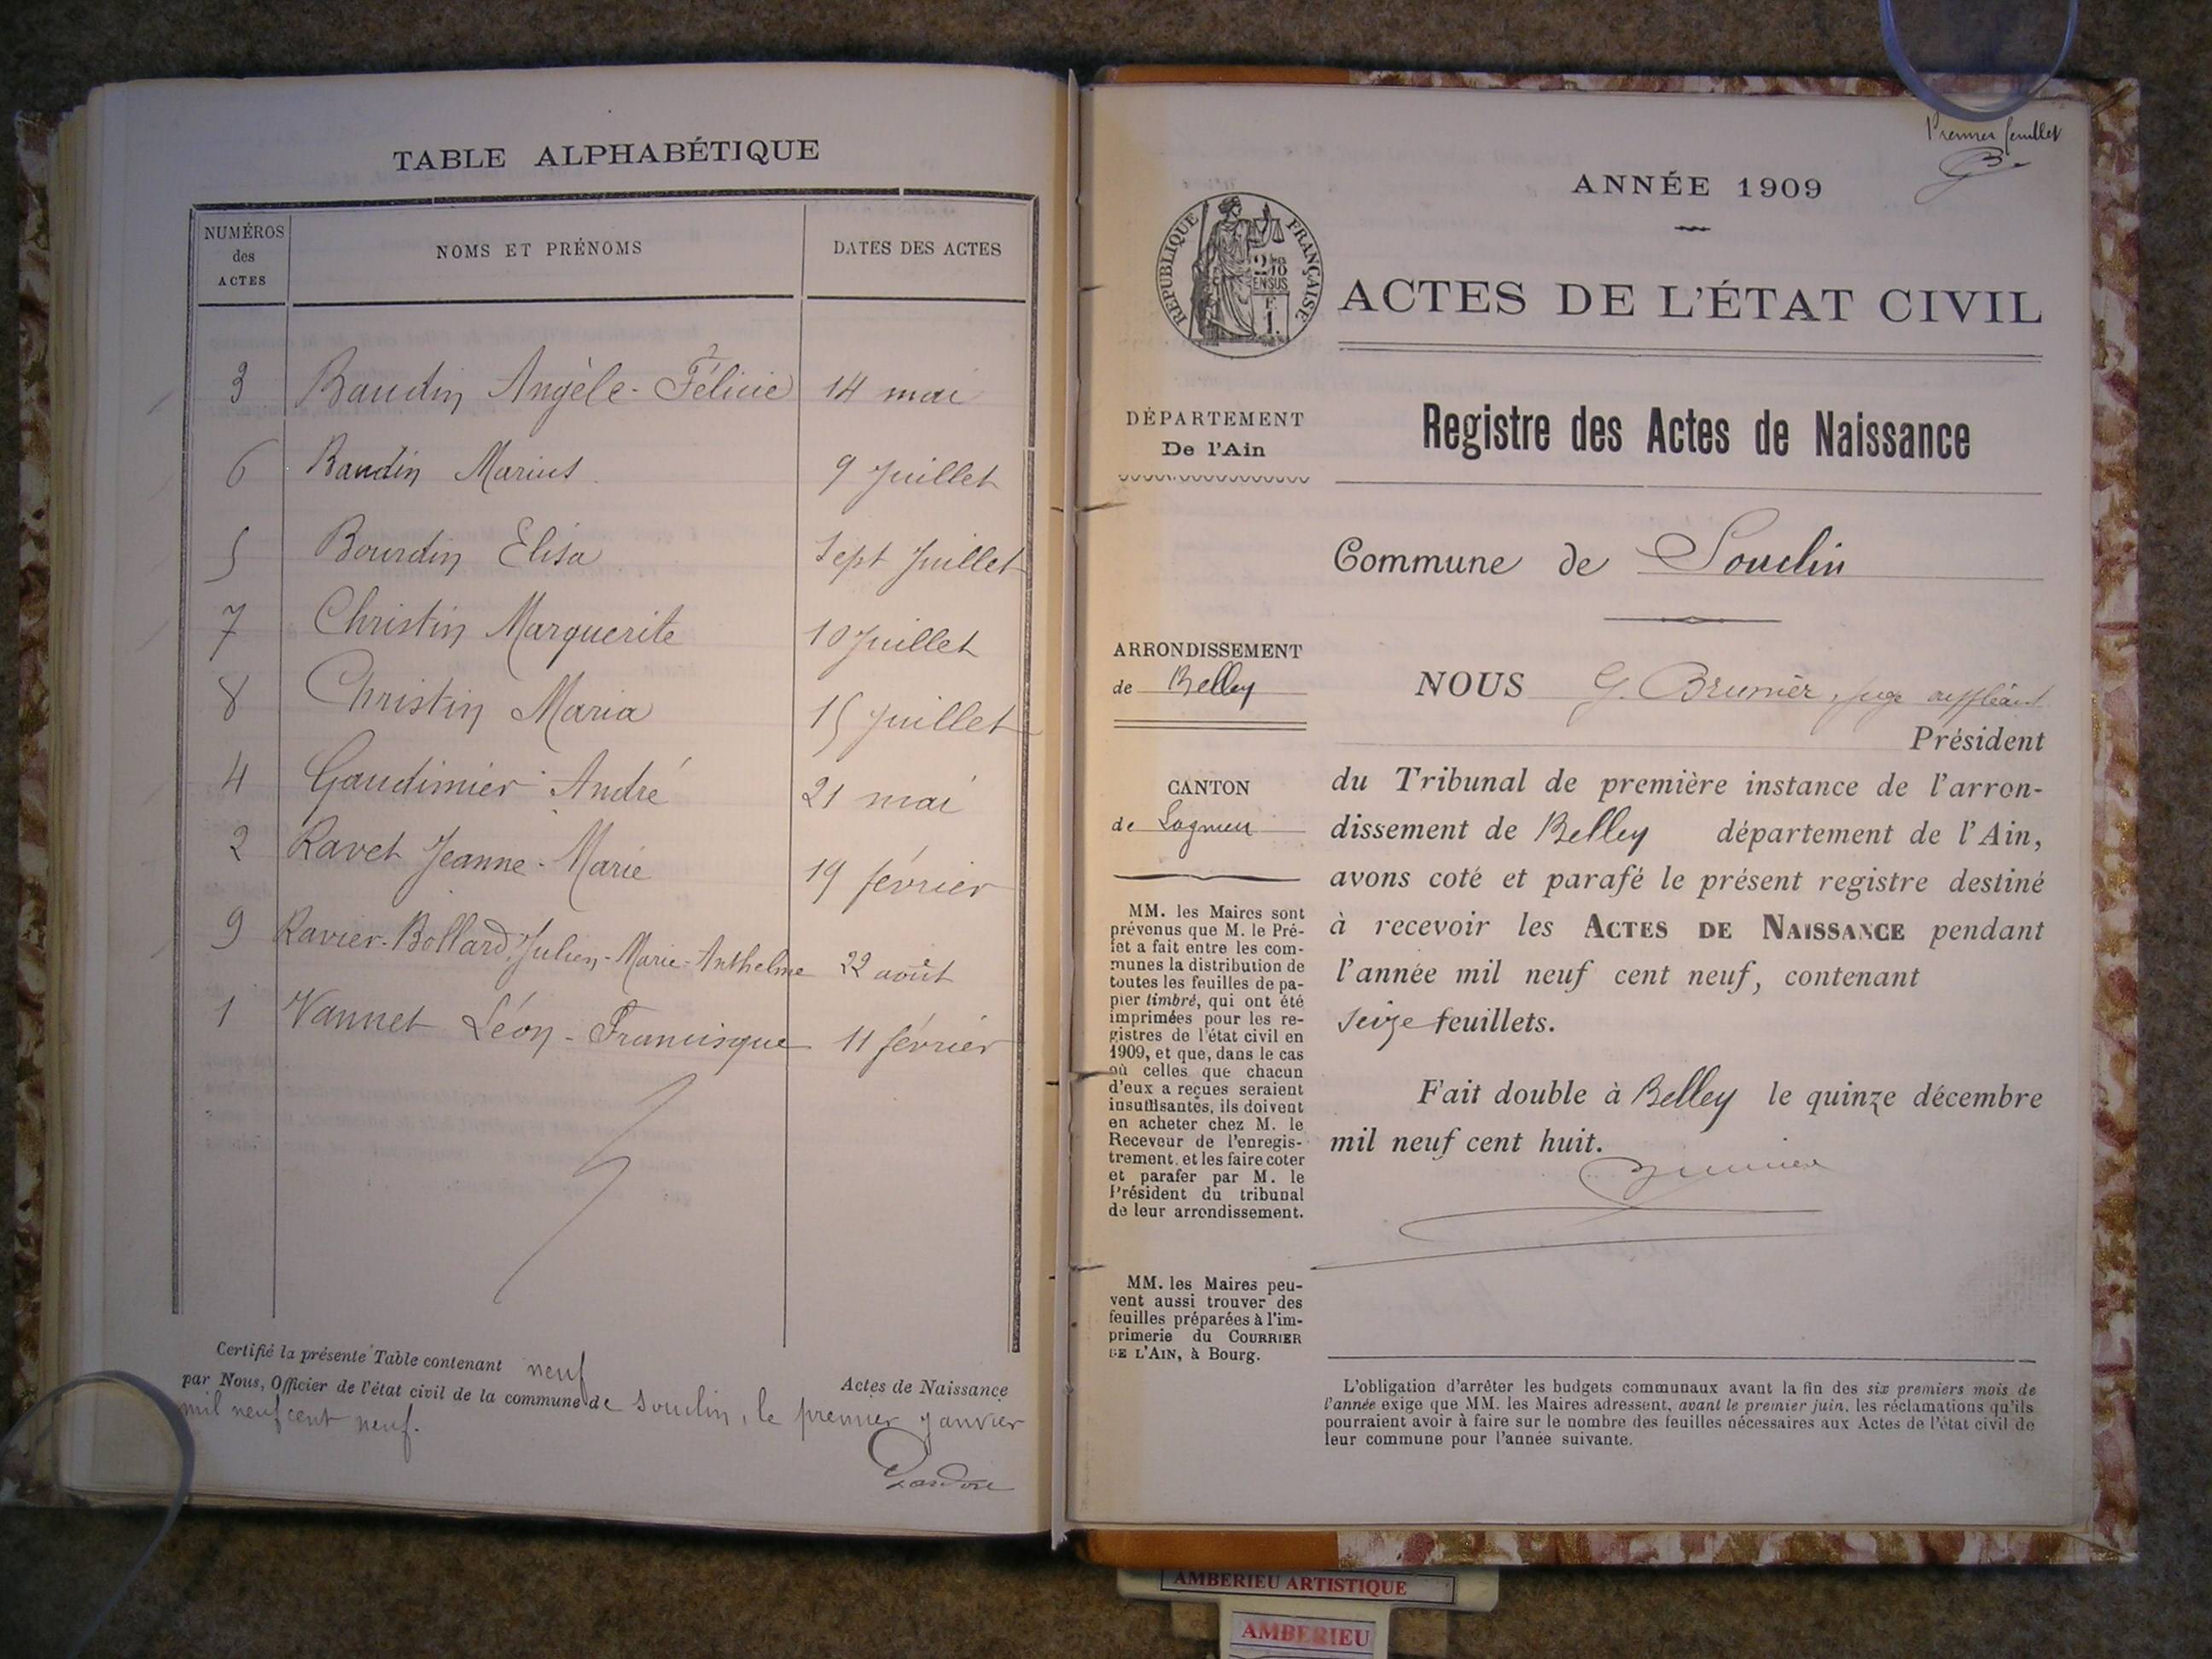 TABLE ALPHABÉTIQUE
NUMÉROS des ACTES
NOMS ET PRÉNOMS
DATES DES ACTES
3 Baudin Angèle-Félicie 14 mai
6 Baudin Marius 9 Juillet
5 Bourdin Elisa Sept Juillet
7 Christin Marguerite 10 Juillet
8 Christin Maria 15 Juillet
4 Gaudimier André 21 mai
2 Ravet Jeanne-Marie 19 février
9 Ravier-Bollard, Julien-Marie-Anthelme 22 août
1 Vannet Léon-Francisque 11 février
Certifié la présente Table contenant neuf Actes de Naissance
par Nous, Officier de l'état civil de la commune de Souclin, le premier janvier
mil neuf cent neuf.
Premier feuillet
ANNÉE 1909
RÉPUBLIQUE FRANÇAISE
ACTES DE L'ÉTAT CIVIL
DÉPARTEMENT
De l'Ain
Registre des Actes de Naissance
Commune de Souclin
ARRONDISSEMENT
de Belley
NOUS G. Brunier, juge suppléant
Président
CANTON
de Lagnieu
du Tribunal de première instance de l'arron-
dissement de Belley département de l'Ain,
avons coté et parafé le présent registre destiné
à recevoir les ACTES DE NAISSANCE pendant
l'année mil neuf cent neuf, contenant
seize feuillets.
Fait double à Belley le quinze décembre
mil neuf cent huit.
Brunier
MM. les Maires sont
prévenus que M. le Pré-
fet a fait entre les com-
munes la distribution de
toutes les feuilles de pa-
pier timbré, qui ont été
imprimées pour les re-
gistres de l'état civil en
1909, et que, dans le cas
où celles que chacun
d'eux a reçues seraient
insuffisantes, ils doivent
en acheter chez M. le
Receveur de l'enregis-
trement, et les faire coter
et parafer par M. le
Président du tribunal
de leur arrondissement.
MM. les Maires peu-
vent aussi trouver des
feuilles préparées à l'im-
primerie du COURRIER
DE L'AIN, à Bourg.
L'obligation d'arrêter les budgets communaux avant la fin des six premiers mois de
l'année exige que MM. les Maires adressent, avant le premier juin, les réclamations qu'ils
pourraient avoir à faire sur le nombre des feuilles nécessaires aux Actes de l'état civil de
leur commune pour l'année suivante.
AMBERIEU ARTISTIQUE
AMBERIEU